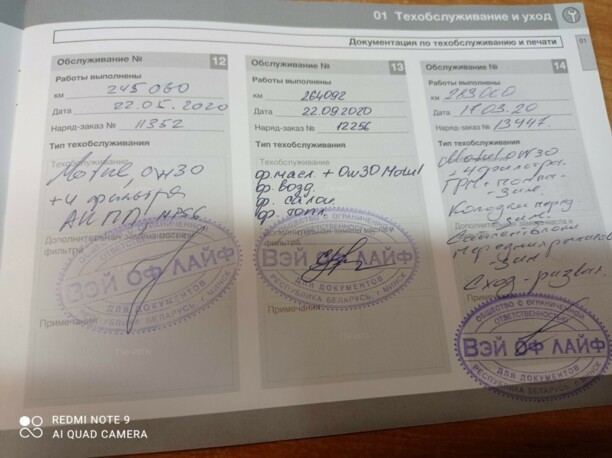 01 Техобслуживание и уход
Документация по техобслуживанию и печати
01
Обслуживание № 12
Работы выполнены
км 245 060
Дата 22.05.2020
Наряд-заказ № 11352
Тип техобслуживания
Техобслуживание
Motul, 0W30
+4 фильтра
Дополнительная замена масла и
фильтра
ВЭЙ ОФ ЛАЙФ
ДЛЯ ДОКУМЕНТОВ
РЕСПУБЛИКА БЕЛАРУСЬ, г. МИНСК
Примечания
Обслуживание № 13
Работы выполнены
км 264092
Дата 22.09.2020
Наряд-заказ № 12256
Тип техобслуживания
Техобслуживание
ф. масл. + 0w30 Motul
ф. возд.
ф. салон
ф. топл.
Дополнительная замена масла и
фильтра
ОБЩЕСТВО С ОГРАНИЧЕННОЙ
ВЭЙ ОФ ЛАЙФ
ДЛЯ ДОКУМЕНТОВ
РЕСПУБЛИКА БЕЛАРУСЬ, г. МИНСК
Примечания
Обслуживание № 14
Работы выполнены
км 283000
Дата
Наряд-заказ № 13447
Тип техобслуживания
Motul 0W30
+4 фильтра
ГРМ + помпа -
зам.
Колодки перед
зам.
Сайлентблоки
передних рычагов
зам.
Сход-развал
Примечания
ОБЩЕСТВО С ОГРАНИЧЕННОЙ
ОТВЕТСТВЕННОСТЬЮ
ВЭЙ ОФ ЛАЙФ
ДЛЯ ДОКУМЕНТОВ
РЕСПУБЛИКА БЕЛАРУСЬ, г. МИНСК
REDMI NOTE 9
AI QUAD CAMERA